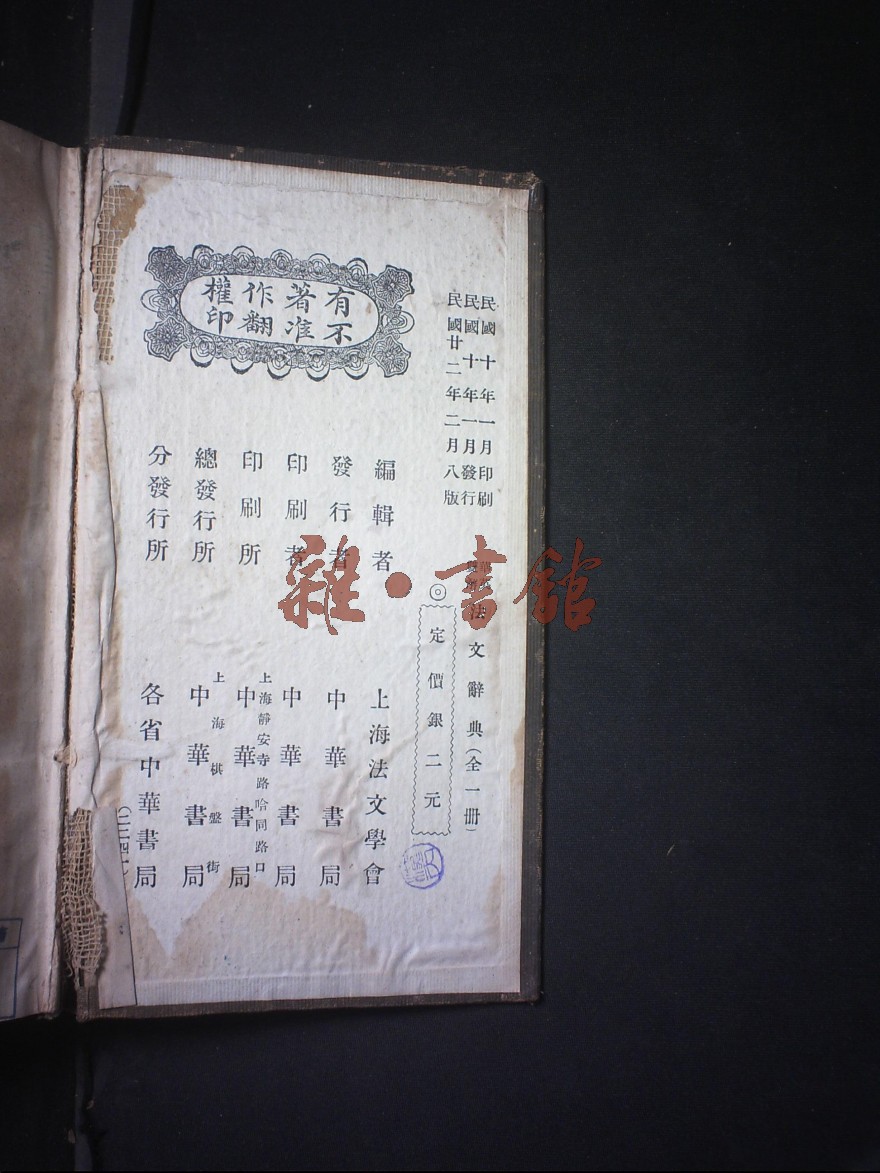 民國十年一月印刷
民國十年一月發行
民國廿二年二月八版
法文辭典(全一冊)
◎定價銀二元
有著作權
不准翻印
編輯者 上海法文學會
發行者 中華書局
印刷者 中華書局
印刷所 上海靜安寺路哈同路口 中華書局
總發行所 上海棋盤街 中華書局
分發行所 各省中華書局
雜·書館